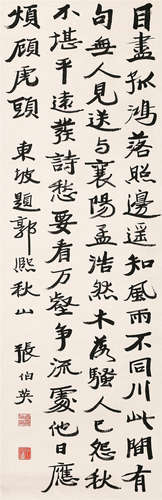 目盡孤鴻落照邊遥知風雨不同川此間有
句無人見送與襄陽孟浩然木落騷人已怨秋
不堪平遠發詩愁要看万壑争流處他日應
煩顧虎頭
東坡題郭熙秋山 張伯英